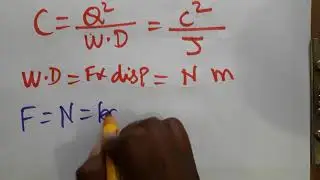 C = Q²/W.D = C²/J
W.D = F x disp = N m
F = N = k